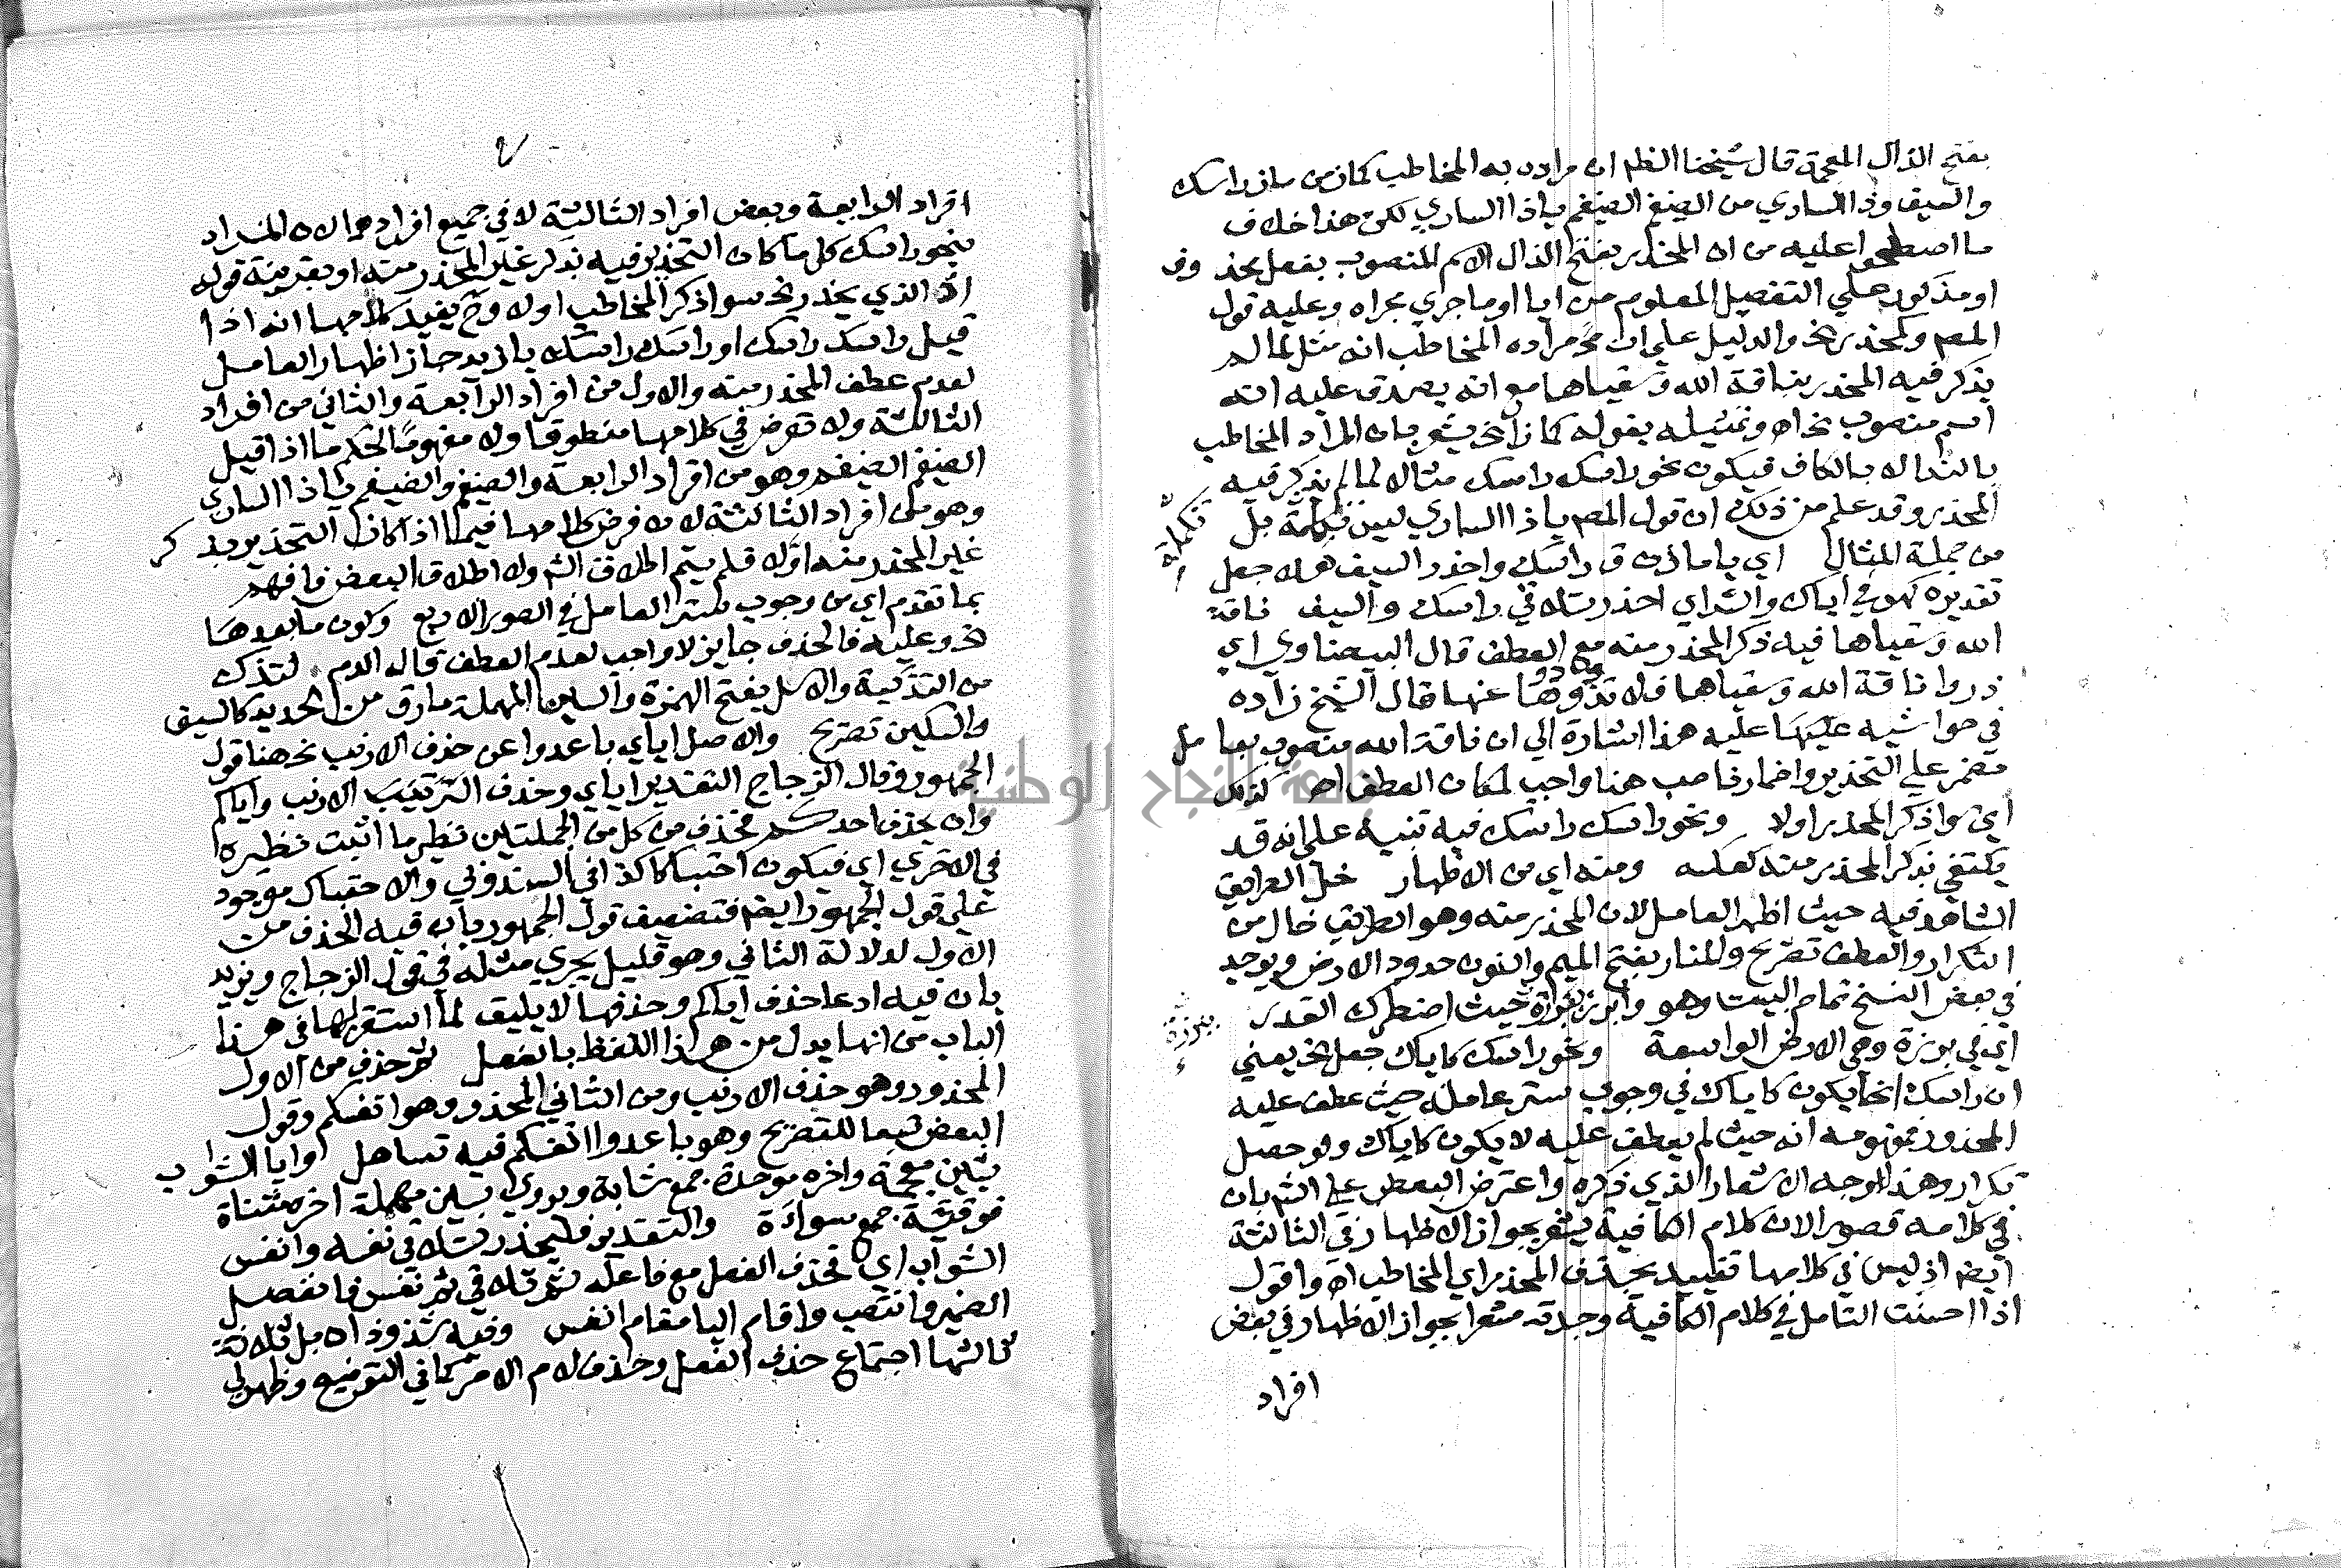 بفتح الذال المعجمة قال شيخنا الظم ان مراده به المخاطب كمازن من ماز راسك
والسيف وذا الساري من الضيغم الضيغم ياذا الساري لكن هذا خلاف
ما اصطلحوا عليه من ان المحذر بفتح الذال الاسم المنصوب بفعل محذوف
او مذكور على التفصيل المعلوم من ايا او ما جري مجراه وعليه قول
المصم ولمحذر الخ والدليل على ان مراده المخاطب انه مثل لما لم
يذكر فيه المحذر بناقة الله وسقياها مع انه يصدق عليه انه
اسم منصوب الخ اه وتمثيله بقوله كمازن الخ يشعر بان المراد المخاطب
بالندا لا بالكاف فيكون نحو راسك راسك مثالا لما لم يذكر فيه
المحذر وقد علم من ذلك ان قول المصم ياذا الساري ليس تكملة بل
تكملة
من جملة المثال اي يا مازن ق راسك واحذر السيف هلا جعل
تقديره كهو في اياك والشر اي احذر تلاقي راسك والسيف ناقة
الله وسقياها فيه ذكر المحذر منه مع العطف قال البيضاوي اي
ذروا ناقة الله وسقياها فلا تذودوها عنها قال الشيخ زاده
في حواشيه عليها عليه هذا اشارة الي ان ناقة الله منصوب بعامل
مضمر علي التحذير واضمار ناصب هنا واجب لمكان العطف اه كذلك
اي سوا ذكر المحذر اولا ونحو راسك راسك فيه تنبيه على انه قد
يكتفي بذكر المحذر منه كعكسه ومنه اي من الاظهار خل الطريق
الشاهد فيه حيث اظهر العامل لان المحذر منه وهو الطريق خال من
التكرار والعطف تصريح والمنار بفتح الميم والنون حدود الارض ويوجد
في بعض النسخ تمام البيت وهو وابرز ببرزة حيث اضطرك القدر
ببرزة
اي في برزة وهي الارض الواسعة ونحو راسك كاياك جعل الخ يعني
ان راسك انما يكون كاياك في وجوب ستر عامله حيث عطف عليه
المحذور بمفهومه انه حيث لم يعطف عليه لا يكون كاياك ولو حصل
تكرار وهذا الوجه الاشعار الذي ذكره واعترض البعض علي الشم بان
في كلامه قصورا لان كلام الكافية يشعر بجواز الاظهار في الثالثة
ايضم اذ ليس في كلامها تقييد بحذف المحذر اي المخاطب اه واقول
اذا احسنت التامل في كلام الكافية وجدته مشعرا بجواز الاظهار في بعض
افراد
افراد الرابعة وبعض افراد الثالثة لا في جميع افرادهما لان المراد
بنحو راسك كل ما كان التحذير فيه بذكر غير المحذر منه او بقرينة قوله
الذي يحذر الخ سوا ذكر المخاطب اولا وح يفيد كلامها انه اذا
قيل راسك راسك او راسك راسك يا زيد جاز اظهار العامل
لعدم عطف المحذر منه والاول من افراد الرابعة والثاني من افراد
الثالثة ولا تعرض في كلامها منطوقا ولا مفهوما لحكم ما اذا قيل
الضيغم الضيغم وهو من افراد الرابعة والضيغم والضيغم ياذا الساري
وهو من افراد الثالثة لان فرض كلامها فيما اذا كان التحذير بذكر
غير المحذر منه اولا فلم يتم اطلاق الشم ولا اطلاق البعض فافهم
بما تقدم اي من وجوب ستر العامل في الصور الاربع وكون ما بعدها
الخ وعليه فالحذف جايز لا واجب لعدم العطف قاله الدم لتذك
من التذكية والاسل بفتح الهمزة والسين المهملة مارق من الحديد كالسيف
والسكين تصريح والاصل اياي باعدوا عن حذف الارنب الخ هذا قول
الجمهور وقال الزجاج التقدير اياي وحذف الارنب واياكم
وان يحذف احدكم فحذف من كل من الجملتين نظير ما اثبت نظيره
في الاخرى اي فيكون احتباكا كذا في السندوبي والاحتباك موجود
علي قول الجمهور ايضم فتضعيف قول الجمهور بان فيه الحذف من
الاول لدلالة الثاني وهو قليل يجري مثله في قول الزجاج ويزيد
بان فيه ادعا حذف اياكم وحذفها لا يليق لما استقر لها في هذا
الباب من انها بدل من هذا اللفظ بالفعل ثم حذف من الاول
المحذور وهو حذف الارنب ومن الثاني المحذر وهو انفسكم وقول
البعض تبعا للتصريح وهو باعدوا انفسكم فيه تساهل وايا الشواب
بشين معجمة واخره موحدة جمع شابة ويروي بسين مهملة اخره مثناة
فوقية جمع سواة والتقدير فليحذر تلاقي نفسه وانفس
الشواب اي فحذف الفعل مع فاعله ثم تلاقي ثم نفس فانفصل
الضمير وانتصب واقام ايا مقام انفس وفيه شذوذان بل ثلاثة
ثالثها اجتماع حذف الفعل وحذف لام الامر كما في التوضيح وظهر لي
جامعة النجاح الوطنية